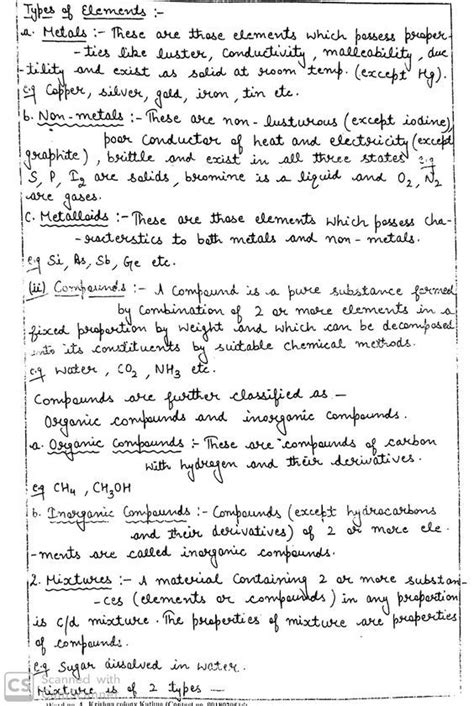 Types of Elements :-
a. Metals :- These are those elements which possess proper-
-ties like luster, conductivity, malleability, duc
-tility and exist as solid at room temp. (except Hg).
e.g Copper, silver, gold, iron, tin etc.
b. Non-metals :- These are non-lusturous (except iodine),
poor conductor of heat and electricity (except
graphite), brittle and exist in all three states e.g
S, P, I2 are solids, bromine is a liquid and O2, N2
are gases.
C. Metalloids :- These are those elements which possess cha-
-racterstics to both metals and non-metals.
e.g Si, As, Sb, Ge etc.
(ii) Compounds :- A Compound is a pure substance formed
by combination of 2 or more elements in a
fixed proportion by weight and which can be decomposed
into its constituents by suitable chemical methods.
e.g Water, CO2, NH3 etc.
Compounds are further classified as -
Organic compounds and inorganic compounds.
a. Organic Compounds :- These are compounds of carbon
with hydrogen and their derivatives.
eg CH4, CH3OH
b. Inorganic Compounds :- Compounds (except hydrocarbons
and their derivatives) of 2 or more ele-
-ments are called inorganic compounds.
2. Mixtures :- A material containing 2 or more substan-
-ces (elements or compounds) in any proportion
is c/d mixture. The properties of mixture are properties
of compounds.
e.g Sugar dissolved in water.
CS Scanned with
Mixture is of 2 types -
Krishna colony Kathua (Contact no.